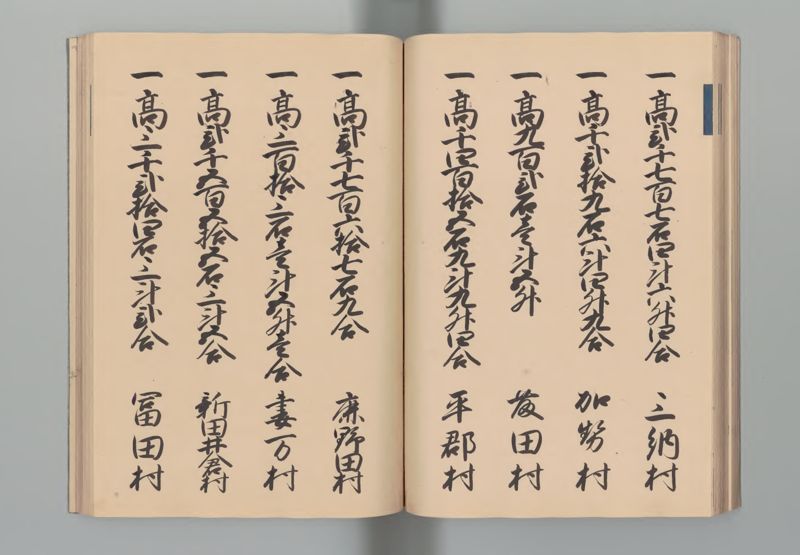 一 高弐千七百七石四斗六升四合 三納村
一 高千弐拾九石六斗四升九合 加勢村
一 高九百弐石壱斗五升 黄田村
一 高千四百拾五石九斗九升四合 平郡村
一 高弐千七百六拾七石九合 麻野田村
一 高三百拾三石壱斗五升壱合 妻万村
一 高弐千五百五拾五石三斗五合 新田井倉村
一 高三千弐拾四石三斗弐合 冨田村